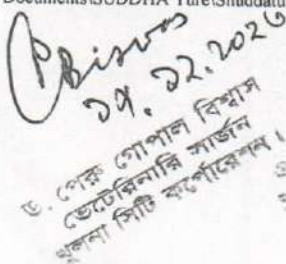 Documents\SUDDHA Ture\Shuddatu
PBiswas
ড. পেরু গোপাল বিশ্বাস
ভেটেরিনারি সার্জন
খুলনা সিটি কর্পোরেশন।